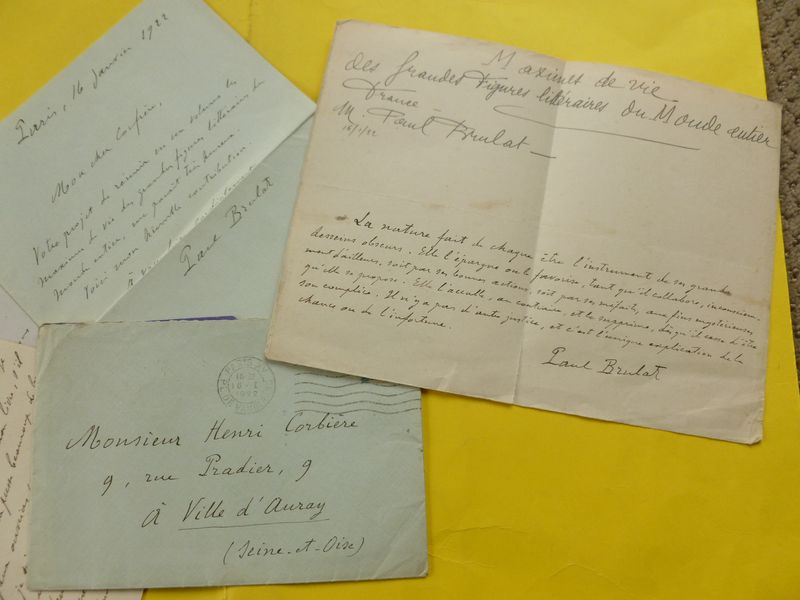 Paris, 16 Janvier 1922
Mon cher Confrère,
Votre projet de réunir en un volume les
maximes de vie des grandes figures littéraires du
monde entier, me paraît très heureux.
Voici mon humble contribution.
à vous bien cordialement
Paul Brulat
Maximes de vie
des Grandes Figures littéraires du Monde entier
France
M. Paul Brulat
16/1/22
La nature fait de chaque être l'instrument de ses grands
desseins obscurs. Elle l'épargne ou le favorise, tant qu'il collabore, inconsciem-
ment d'ailleurs, soit par ses bonnes actions, soit par ses méfaits, aux fins mystérieuses
qu'elle se propose. Elle l'accable, au contraire, et le supprime, dès qu'il cesse d'être
son complice. Il n'y a pas d'autre justice, et c'est l'unique explication de la
chance ou de l'infortune.
Paul Brulat
Monsieur Henri Corbière
9, rue Pradier, 9
à Ville d'Avray
(Seine-et-Oise)